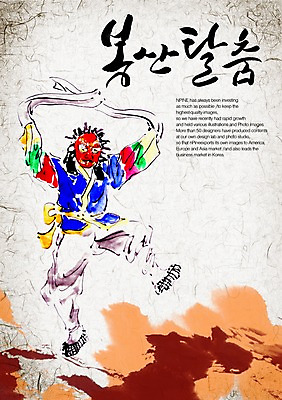 봉산탈춤
NPINE has always been investing
as much as possible ,to keep the
highest-quality images,
so we have recently had rapid growth
and held various illustrations and Photo images
More than 50 designers have produced contents
at our own design lab and photo studio,
so that nPineexports its own images to America,
Europe and Asia market /and also leads the
business market in Korea.